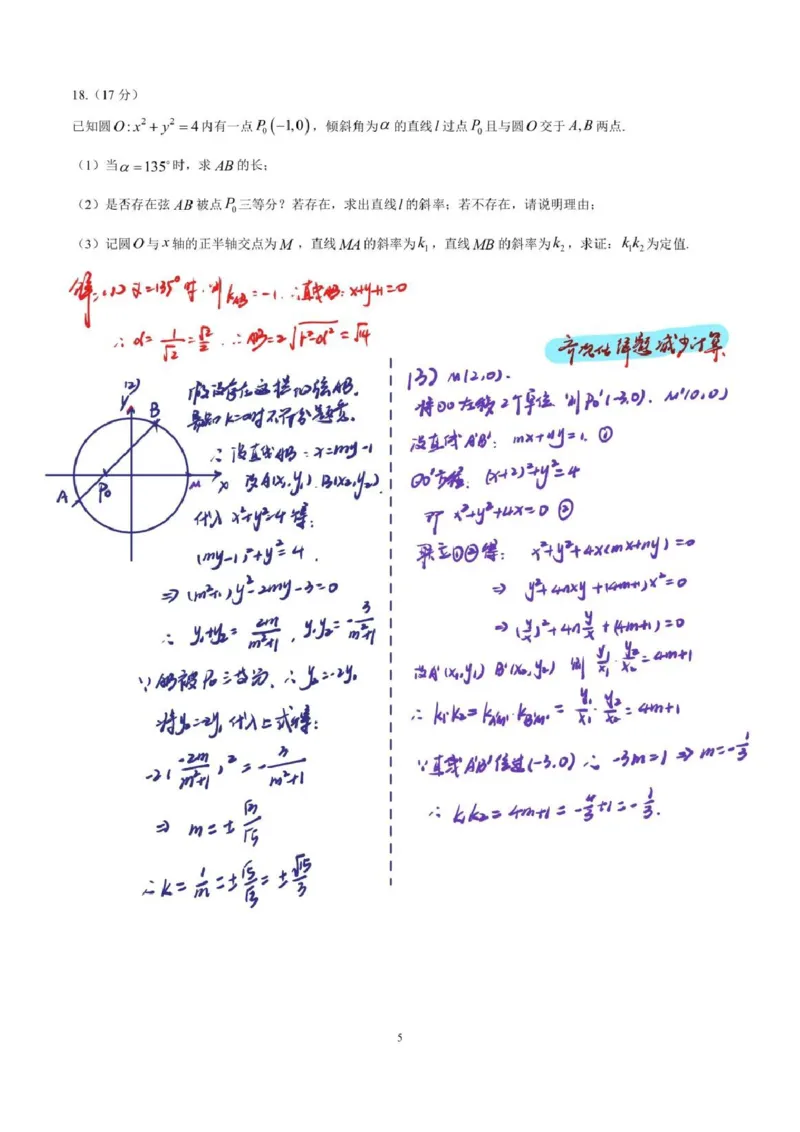 18.（17 分）
已知圆O:x²+y²=4内有一点P₀(−1,0)，倾斜角为α的直线l过点P₀且与圆O交于A,B两点.
（1）当α=135°时，求AB的长；
（2）是否存在弦AB被点P₀三等分？若存在，求出直线l的斜率；若不存在，请说明理由；
（3）记圆O与x轴的正半轴交点为M，直线MA的斜率为k₁，直线MB的斜率为k₂，求证：k₁k₂为定值.
解:(1) α=135°时.则k_AB=-1. ∴直线AB: x+y+1=0
∴d=1/√2=√2/2. ∴AB=2√(r²-d²)=√14
齐次化解题减少计算
(2)
y
B
A
P₀
M
x
假设存在这样的弦AB.
易知k=0时不符合题意.
∴设直线AB: x=my-1
设A(x₁,y₁). B(x₂,y₂).
代入x²+y²=4得:
(my-1)²+y²=4.
⇒(m²+1)y²-2my-3=0
∴ y₁+y₂=2m/(m²+1), y₁y₂=-3/(m²+1)
∵AB被P₀三等分. ∴y₂=-2y₁
将y₂=-2y₁代入上式得:
-2(-2m/(m²+1))²=-3/(m²+1)
⇒ m=±√3/√5
∴k=1/m=±√5/√3=±√15/3
(3) M(2,0).
将⊙O左移2个单位 则P₀'(-3,0). M'(0,0)
设直线A'B': mx+ny=1. ①
⊙O'方程: (x+2)²+y²=4
即 x²+y²+4x=0 ②
联立①②得: x²+y²+4x(mx+ny)=0
⇒ y²+4nxy+(4m+1)x²=0
⇒(y/x)²+4n y/x+(4m+1)=0
设A'(x₁,y₁) B'(x₂,y₂) 则 y₁/x₁·y₂/x₂=4m+1
∴ k₁·k₂=k_A'M'·k_B'M'=y₁/x₁·y₂/x₂=4m+1
∵直线A'B'恒过(-3,0) ∴ -3m=1 ⇒ m=-1/3
∴ k₁k₂=4m+1=-4/3+1=-1/3.
5